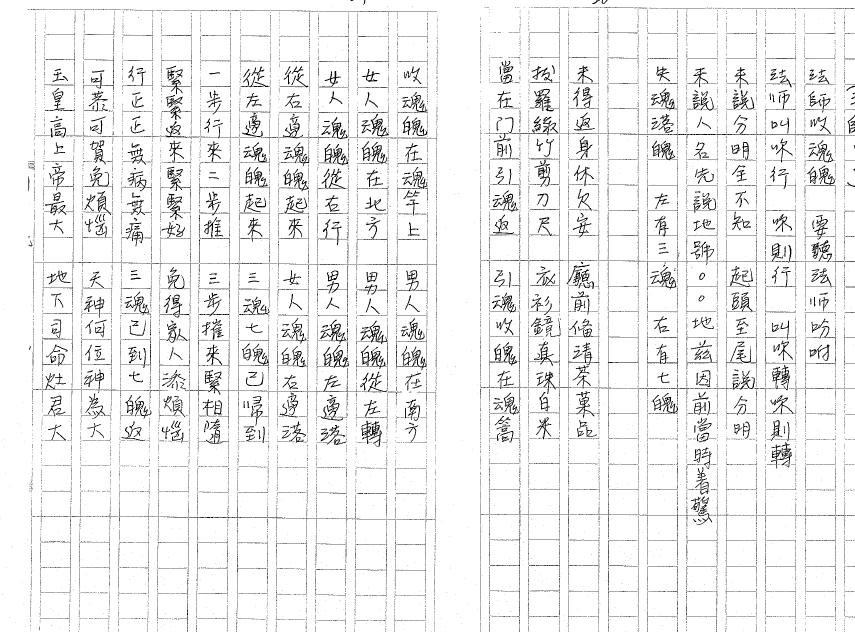 法師收魂魄 要聽法師吩咐
法師叫咪行 咪則行 叫咪轉咪則轉
來說分明全不知 起頭至尾說分明
未說人名先說地號 ○○地茲因前當時着驚
失魂落魄 左有三魂 右有七魄
未得返身休欠安 廳前俻清茶菓品
拔羅綠竹剪刀尺 衣衫鏡真珠白米
當在门前引魂返 引魂收魄在魂篙
收魂魄在魂竿上 男人魂魄在南方
女人魂魄在地方 男人魂魄從左轉
女人魂魄從右行 男人魂魄左邊落
從右邊魂魄起來 女人魂魄右邊落
從左邊魂魄起來 三魂七魄已歸到
一步行來二步推 三步摧來緊相隨
緊緊返來緊緊好 免得家人添煩惱
行正正無病無痛 三魂已到七魄返
可恭可賀免煩惱 天神何位神為大
玉皇高上帝最大 地下司命灶君大